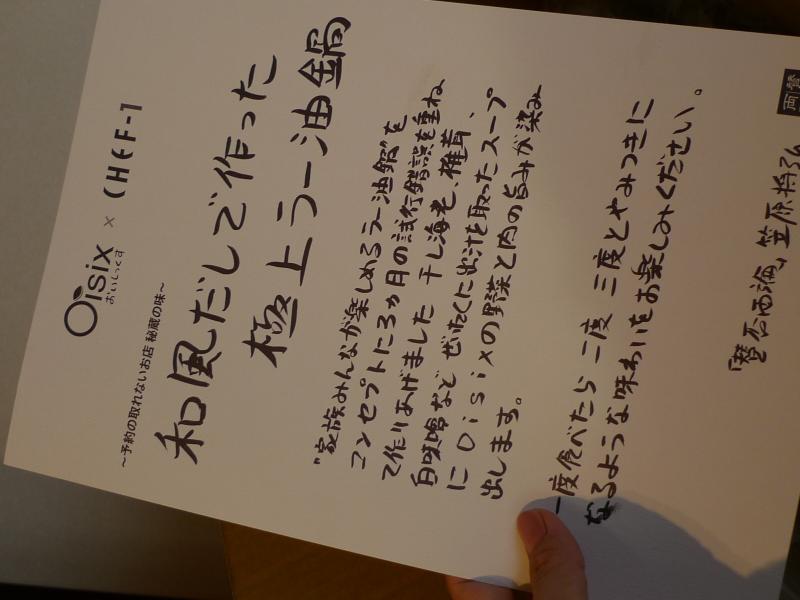 Oisix × CHEF-1
おいしっくす
～予約の取れないお店 秘蔵の味～
和風だしで作った
極上ラー油鍋
"家族みんなが楽しめるラー油鍋"を
コンセプトに3ヵ月の試行錯誤を重ね
て作りあげました 干し海老、椎茸、
白味噌など ぜいたくに出汁を取ったスープ
に Oisixの野菜と肉の旨みが染み
出します。
一度食べたら 二度 三度とやみつきに
なるような味わいをお楽しみください。
賛否両
笠原将弘